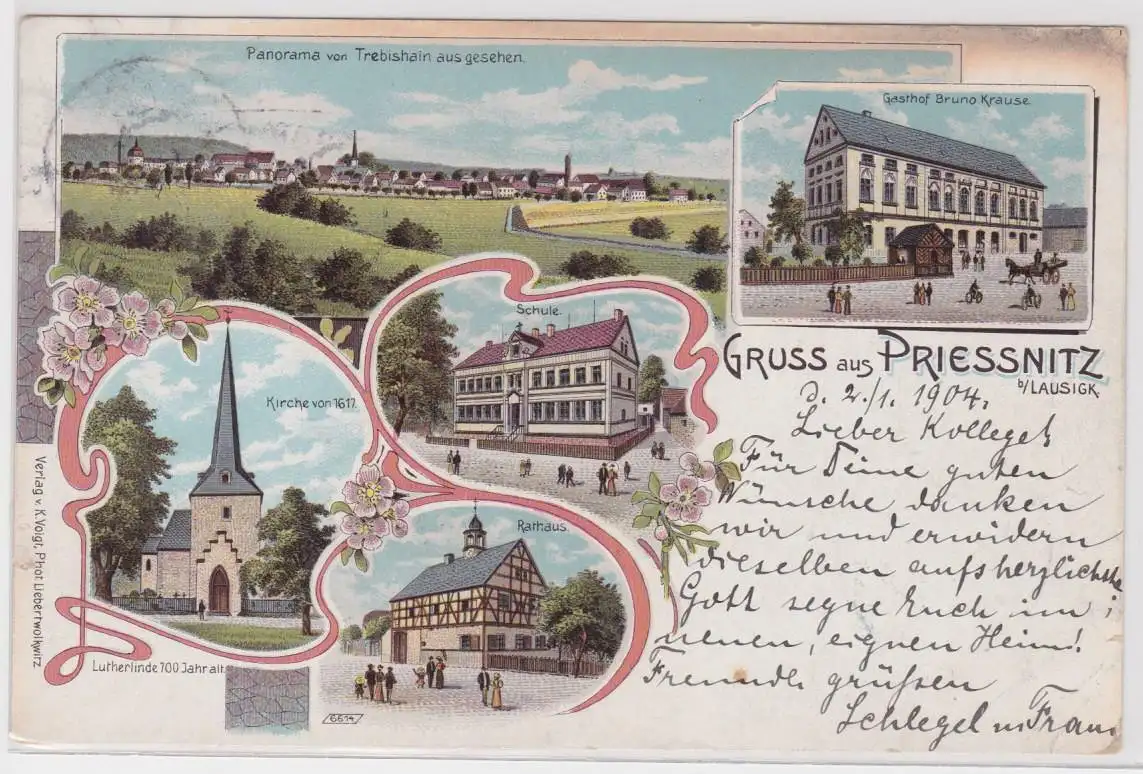 Panorama von Trebishain aus gesehen.
Gasthof Bruno Krause.
Schule.
Kirche von 1617.
Rathaus.
Lutherlinde 700 Jahr alt.
6614
Verlag v. K. Voigt, Phot. Liebertwolkwitz
GRUSS aus PRIESSNITZ
b/LAUSIGK.
d. 2./1. 1904.
Lieber Kollege!
Für Deine guten
Wünsche danken
wir und erwidern
dieselben aufs herzlichste
Gott segne Euch im
neuen, eignen Heim!
Freundl. grüßen
Schlegel u. Frau